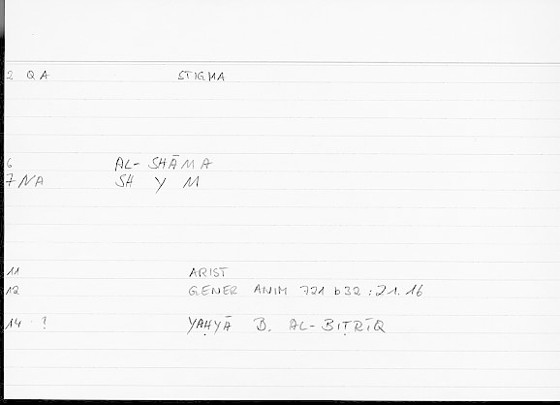 2 QA STIGMA
6 AL-SHĀMA
7 NA SH Y M
11 ARIST
12 GENER ANIM 721 b32 : 21.16
14 ! YAḤYĀ B. AL-BIṬRĪQ